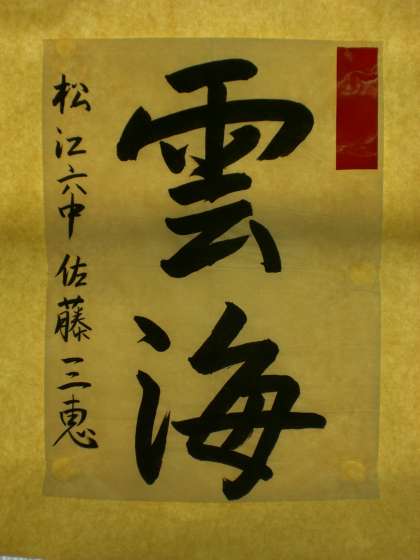 雲海
松江六中 佐藤三恵